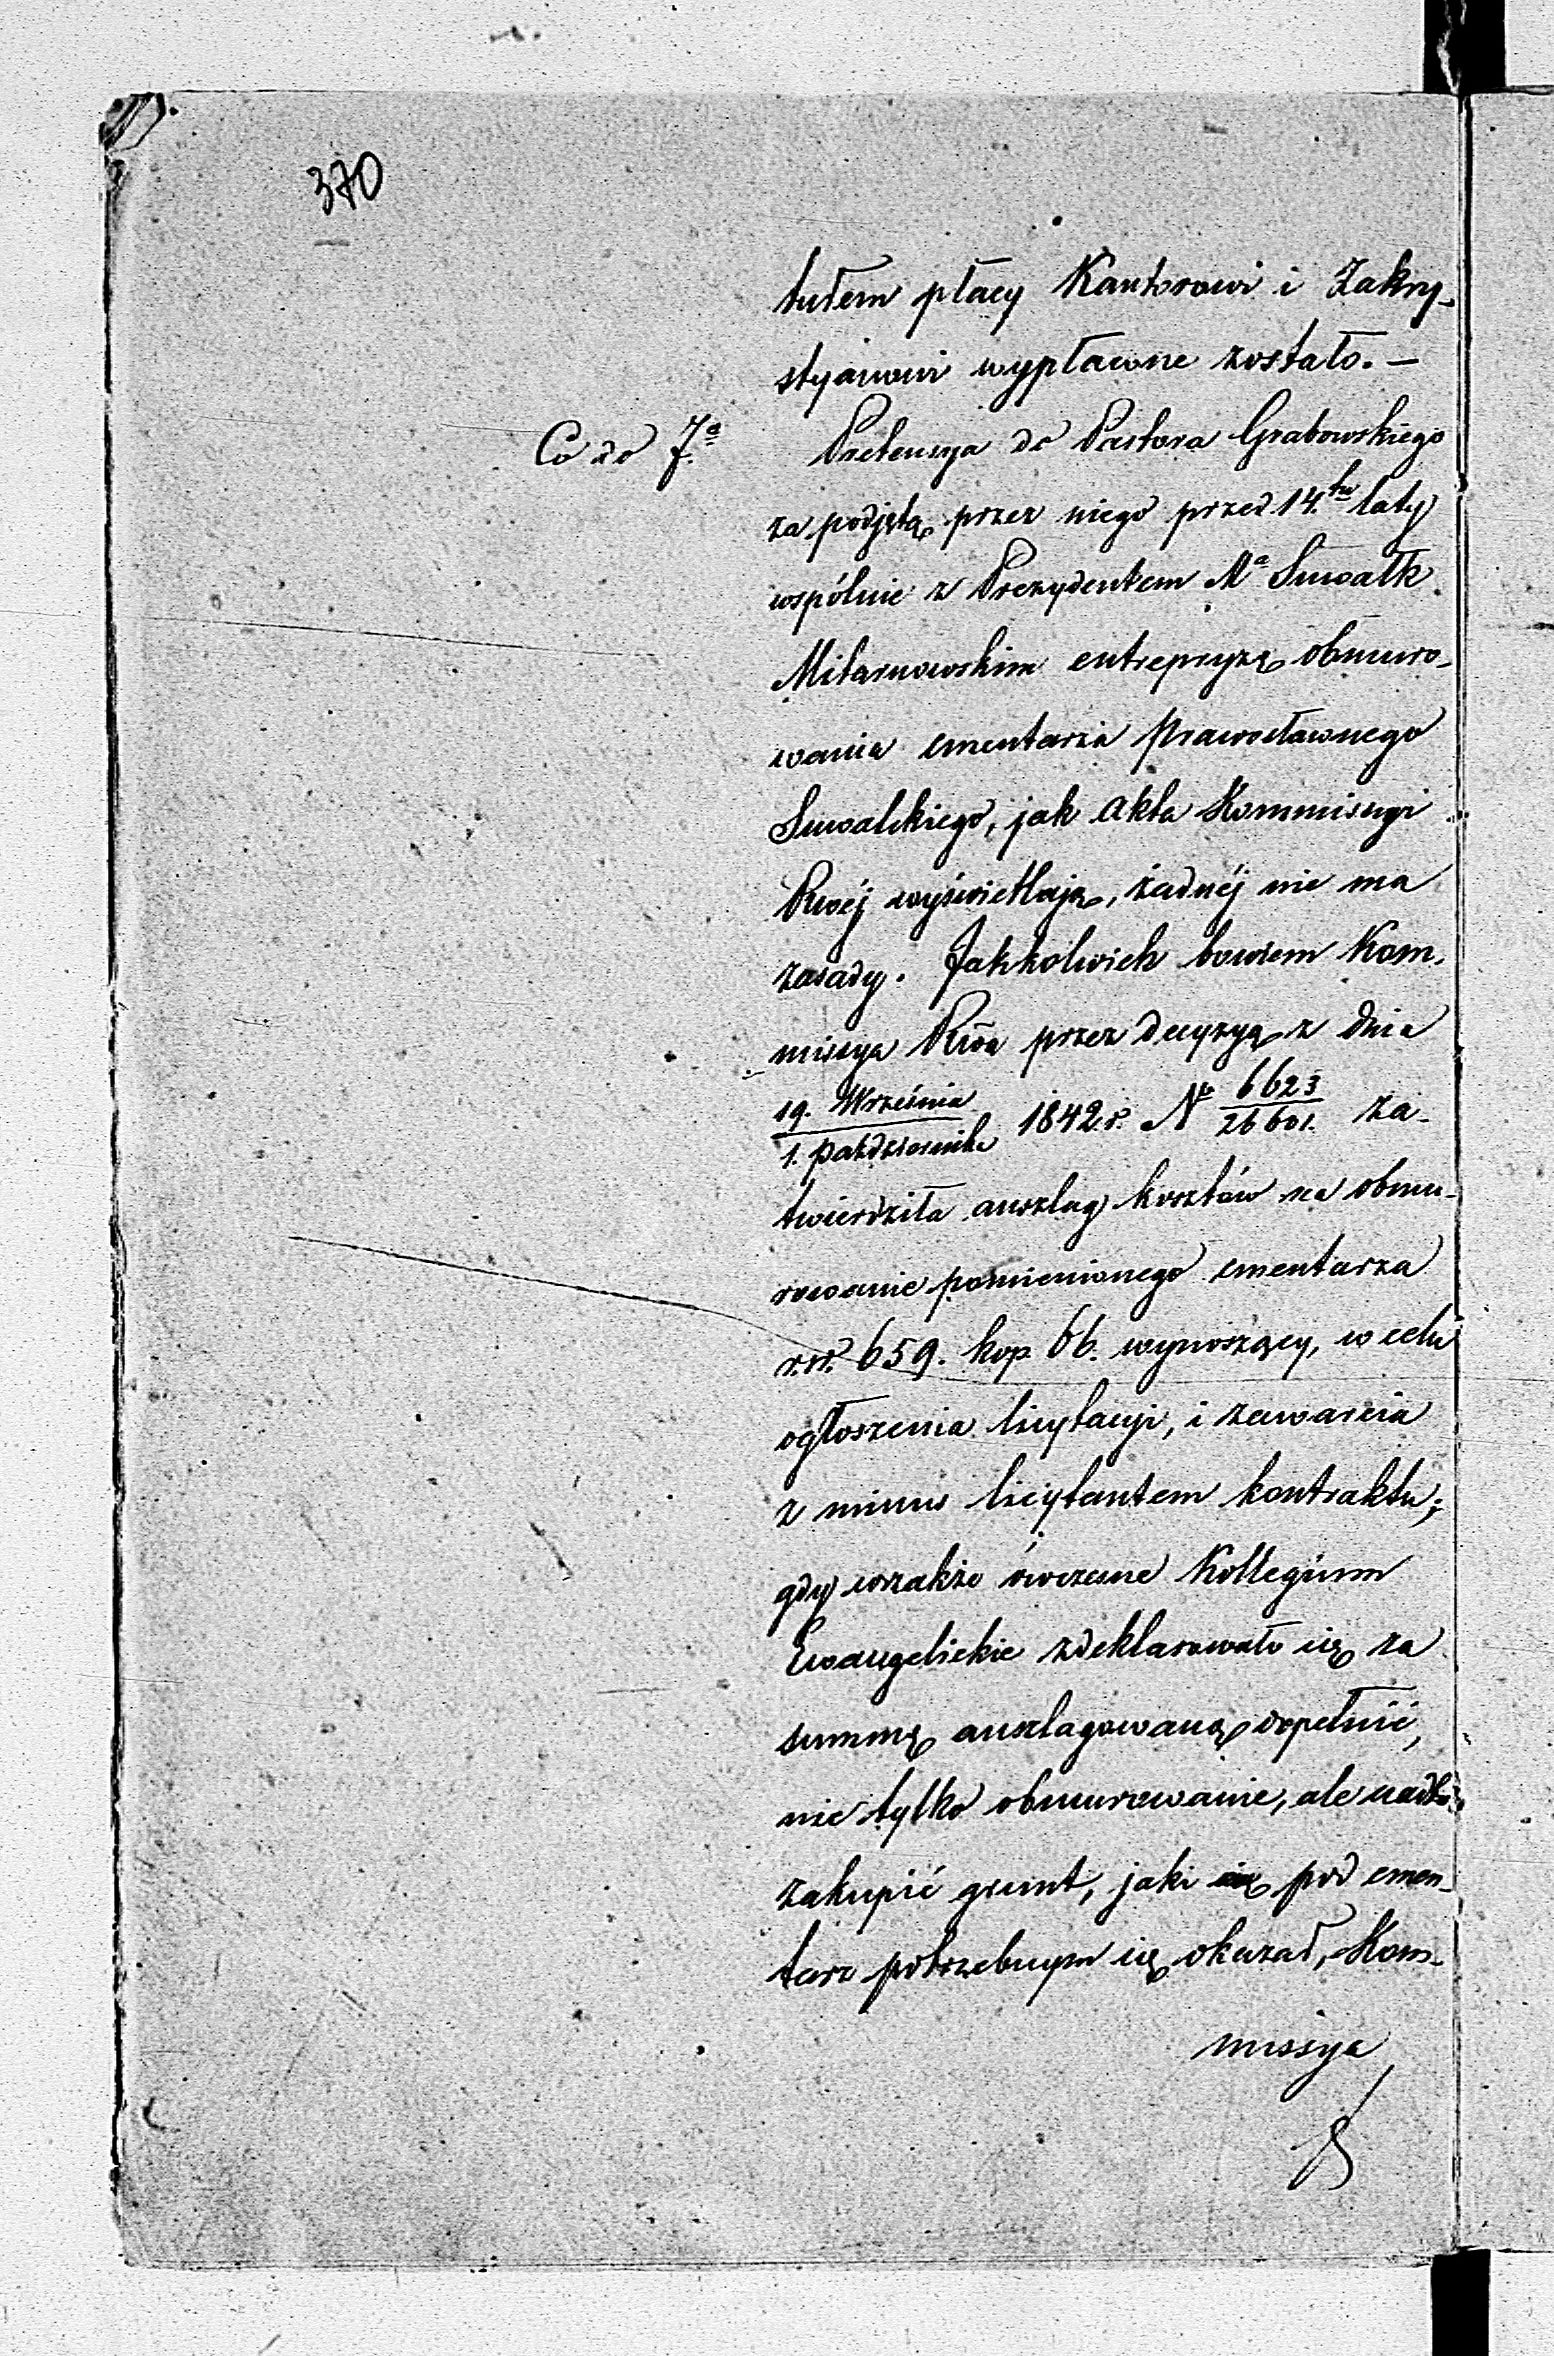 370
tułem płacy Kantorowi i Zakry-
styanowi wypłacone zostało. —
Co do 7ª
Pretensya do Pastora Grabowskiego
za podjętą przez niego przed 14.tu laty
wspólnie z Prezydentem Mª Suwałk
Mitarnowskim entrepryzę obmuro-
wania cmentarza prawosławnego
Suwalskiego, jak akta Kommissyi
Rwéj wyświetlają, żadnéj nie ma
zasady. Jakkolwiek bowiem Kom-
missya Rwa przez decyzyą z dnia
19. Września / 1. Października 1842 r. № 6623/26601. za-
twierdziła anszlag kosztów na obmu-
rowanie pomienionego cmentarza
r.sr. 659. kop. 66. wynoszący, w celu
ogłoszenia licytacyi, i zawarcia
z minus licytantem kontraktu;
gdy wszakże ówczesne Kollegium
Ewangelickie zdeklarowało się za
summę anszlagowaną dopełnić,
nie tylko obmurowanie, ale nadto
zakupić grunt, jaki pod cmen-
tarz potrzebnym się okazał, Kom-
missya